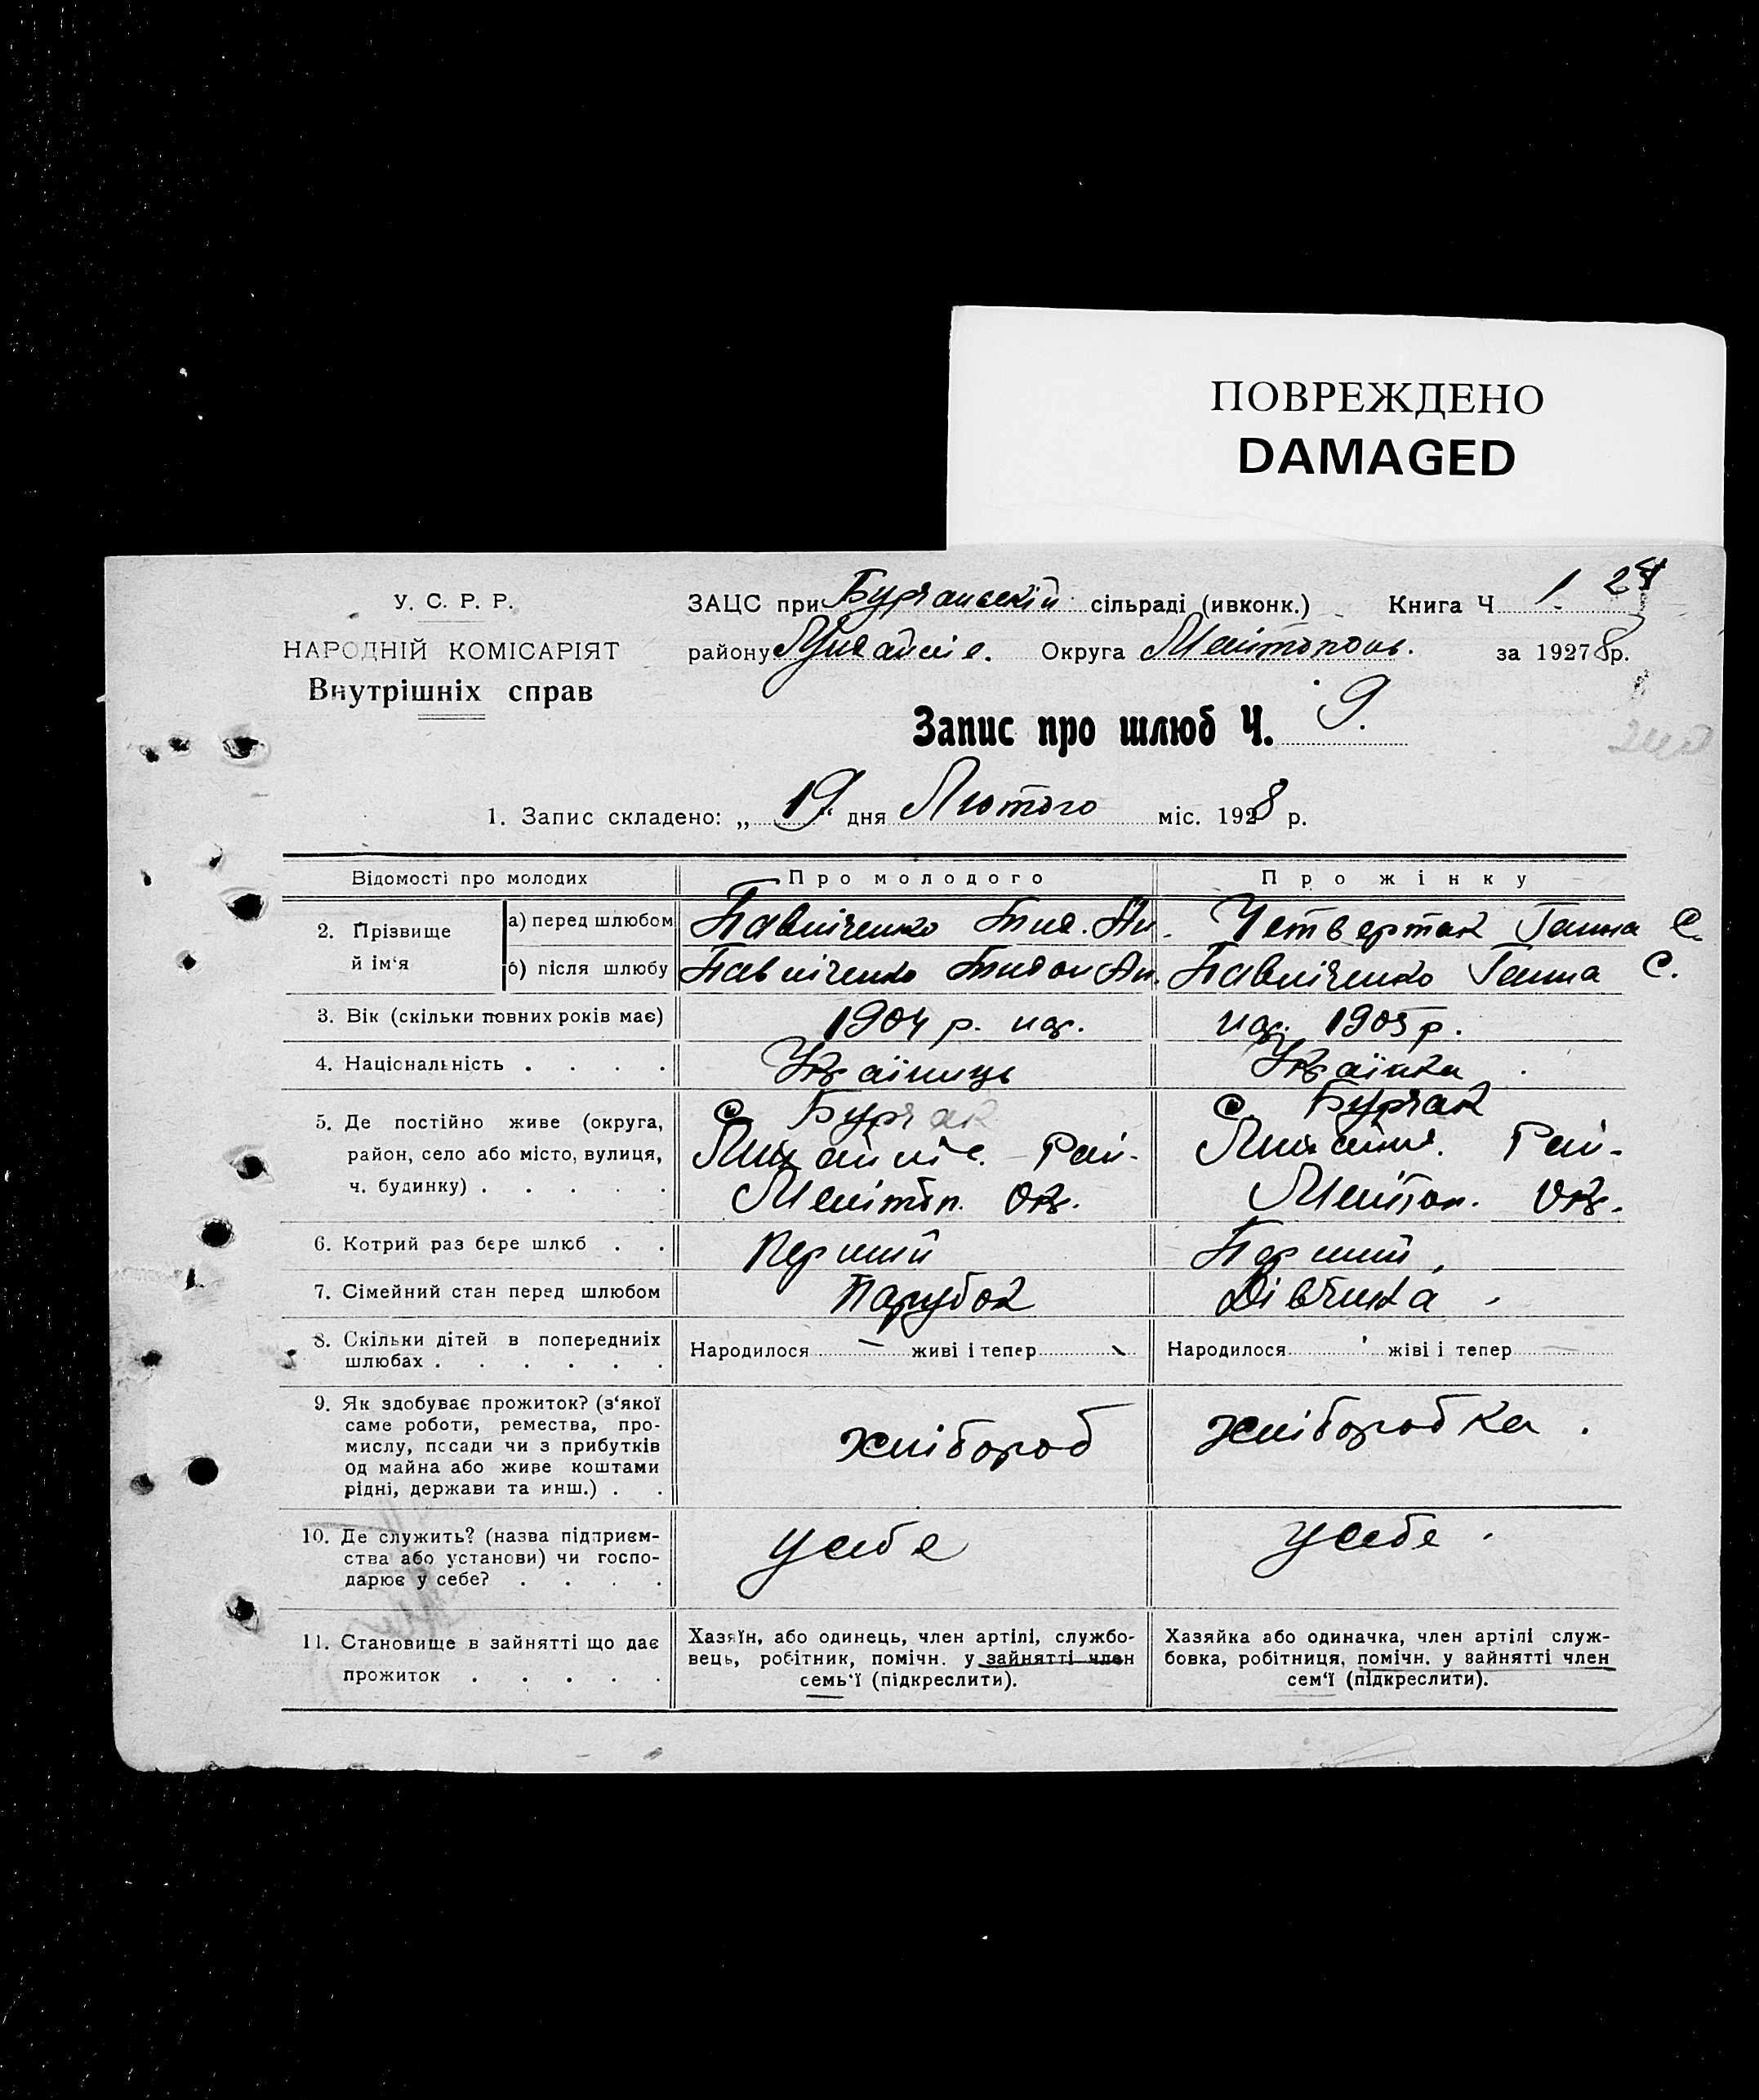 ПОВРЕЖДЕНО
DAMAGED
У. С. Р. Р.
НАРОДНІЙ КОМІСАРІЯТ
Внутрішніх справ
ЗАЦС при сільраді (ивконк.) Книга Ч 1
району Округа Мелітополь. за 1927 8р.
Запис про шлюб Ч. 9.
1. Запис складено: „ 19 " дня Лютого міс. 1928 р.
Відомості про молодих Про молодого Про жінку
2. Прізвище й ім'я
а) перед шлюбом Павліченко Ан. Четвертак Ганна С.
б) після шлюбу Павліченко Ан. Павліченко Ганна С.
3. Вік (скільки повних років має) 1904 р. нар. нар. 1905 р.
4. Національність . . . . Українець Українка
5. Де постійно живе (округа, район, село або місто, вулиця, ч. будинку) . . . . .
с. Бурчак
Рай-
Мелітоп. Ок.
с. Бурчак
Рай-
Меліоп. Ок.
6. Котрий раз бере шлюб . . Перший Перший
7. Сімейний стан перед шлюбом Парубок Дівчина
8. Скільки дітей в попередниіх шлюбах . . . . . . Народилося — живі і тепер Народилося жіві і тепер
9. Як здобуває прожиток? (з'якої
саме роботи, ремества, про-
мислу, посади чи з прибутків
од майна або живе коштами
рідні, держави та инш.) . .
хлібороб хліборобка.
10. Де служить? (назва підприєм-
ства або установи) чи госпо-
дарює у себе? . . . .
у себе у себе
11. Становище в зайнятті що дає
прожиток . . . . .
Хазяїн, або одинець, член артілі, службо-
вець, робітник, помічн. у зайнятті член
семь'ї (підкреслити).
Хазяйка або одиначка, член артілі служ-
бовка, робітниця, помічн. у зайнятті член
сем'ї (підкреслити).